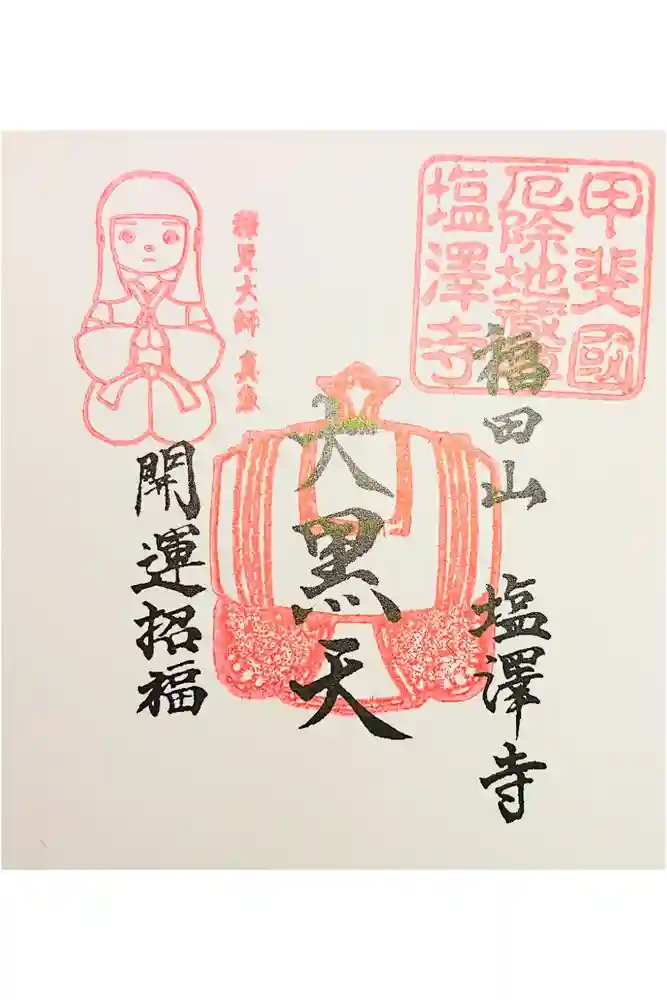 甲斐國
厄除地蔵尊
塩澤寺
福田山 塩澤寺
大黒天
開運招福
大師 真象